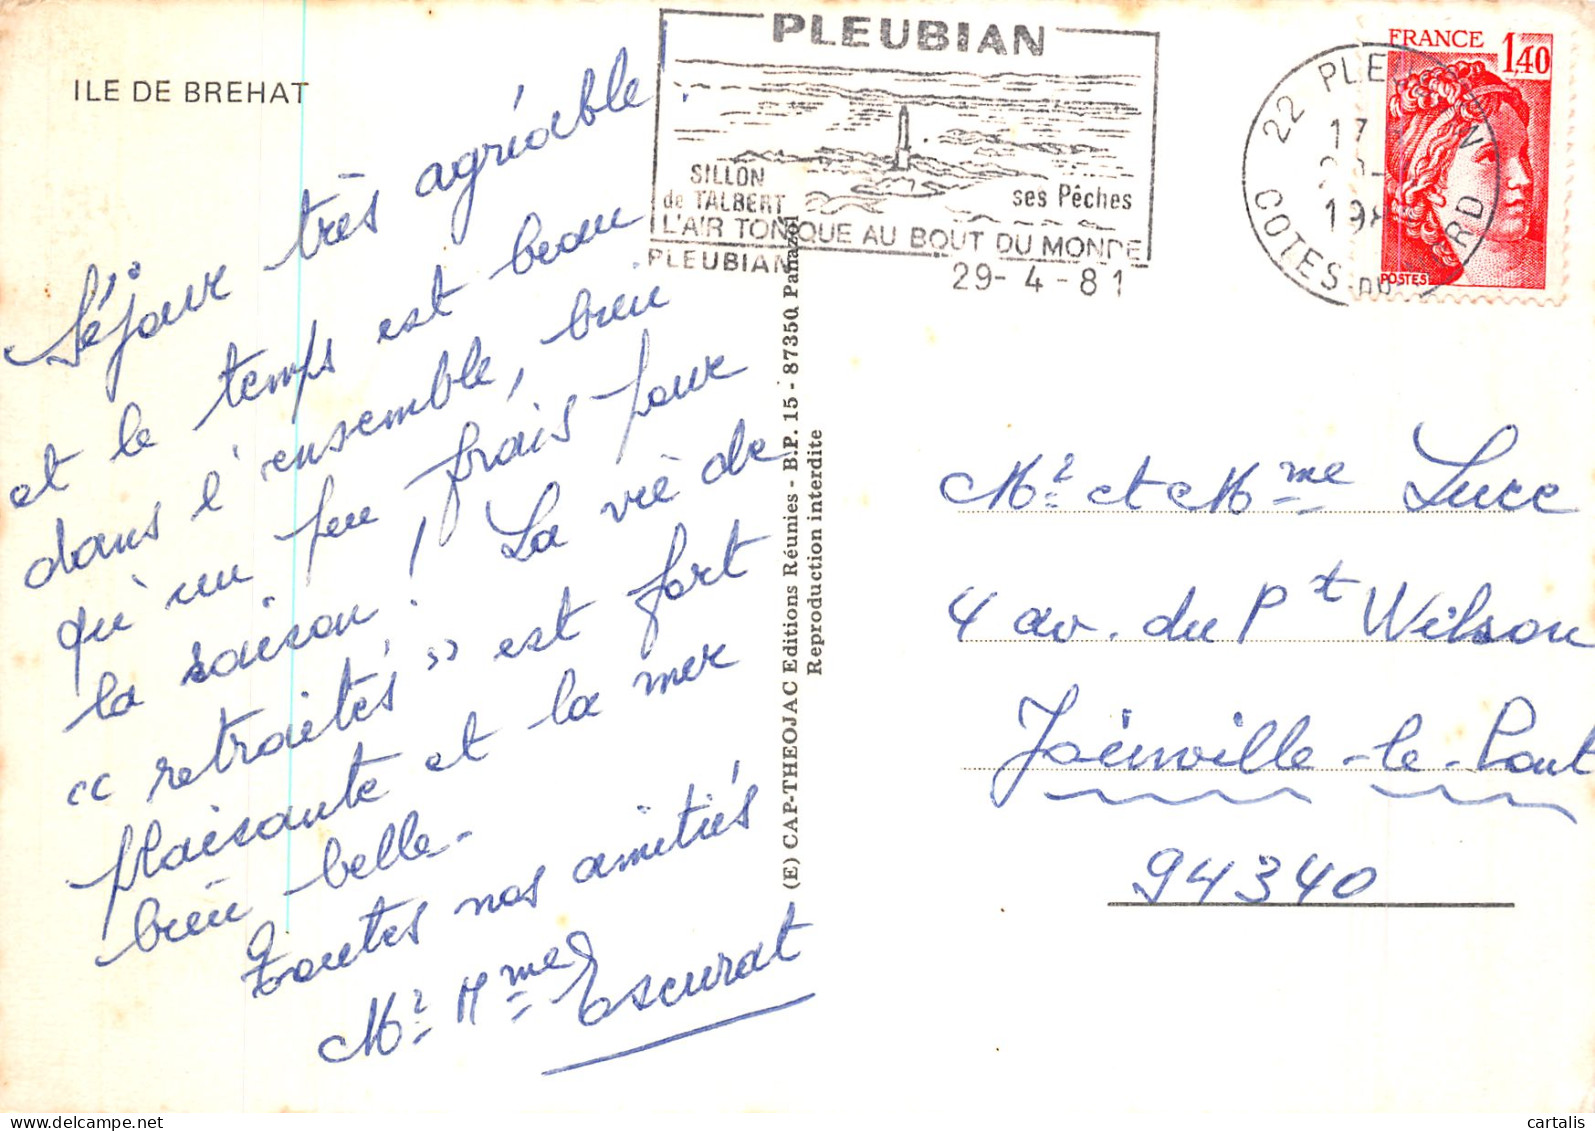 ILE DE BREHAT
Séjour très agréable !
et le temps est beau
dans l'ensemble, bien
qu'un peu frais pour
la saison ! La vie de
« retraités » est fort
plaisante et la mer
bien belle -
Toutes nos amitiés
Mr. Mme Escurat
PLEUBIAN
SILLON
de TALBERT
ses Pêches
L'AIR TONIQUE AU BOUT DU MONDE
PLEUBIAN
29-4-81
22 PLEUBIAN
17
COTES-DU-NORD
FRANCE 1,40
POSTES
(E) CAP-THEOJAC Editions Réunies - B.P. 15 - 87350 Panazol
Reproduction interdite
Mr. et Mme Luce
4 av. du Pt Wilson
Joinville-le-Pont
94340
cartalis
www.delcampe.net